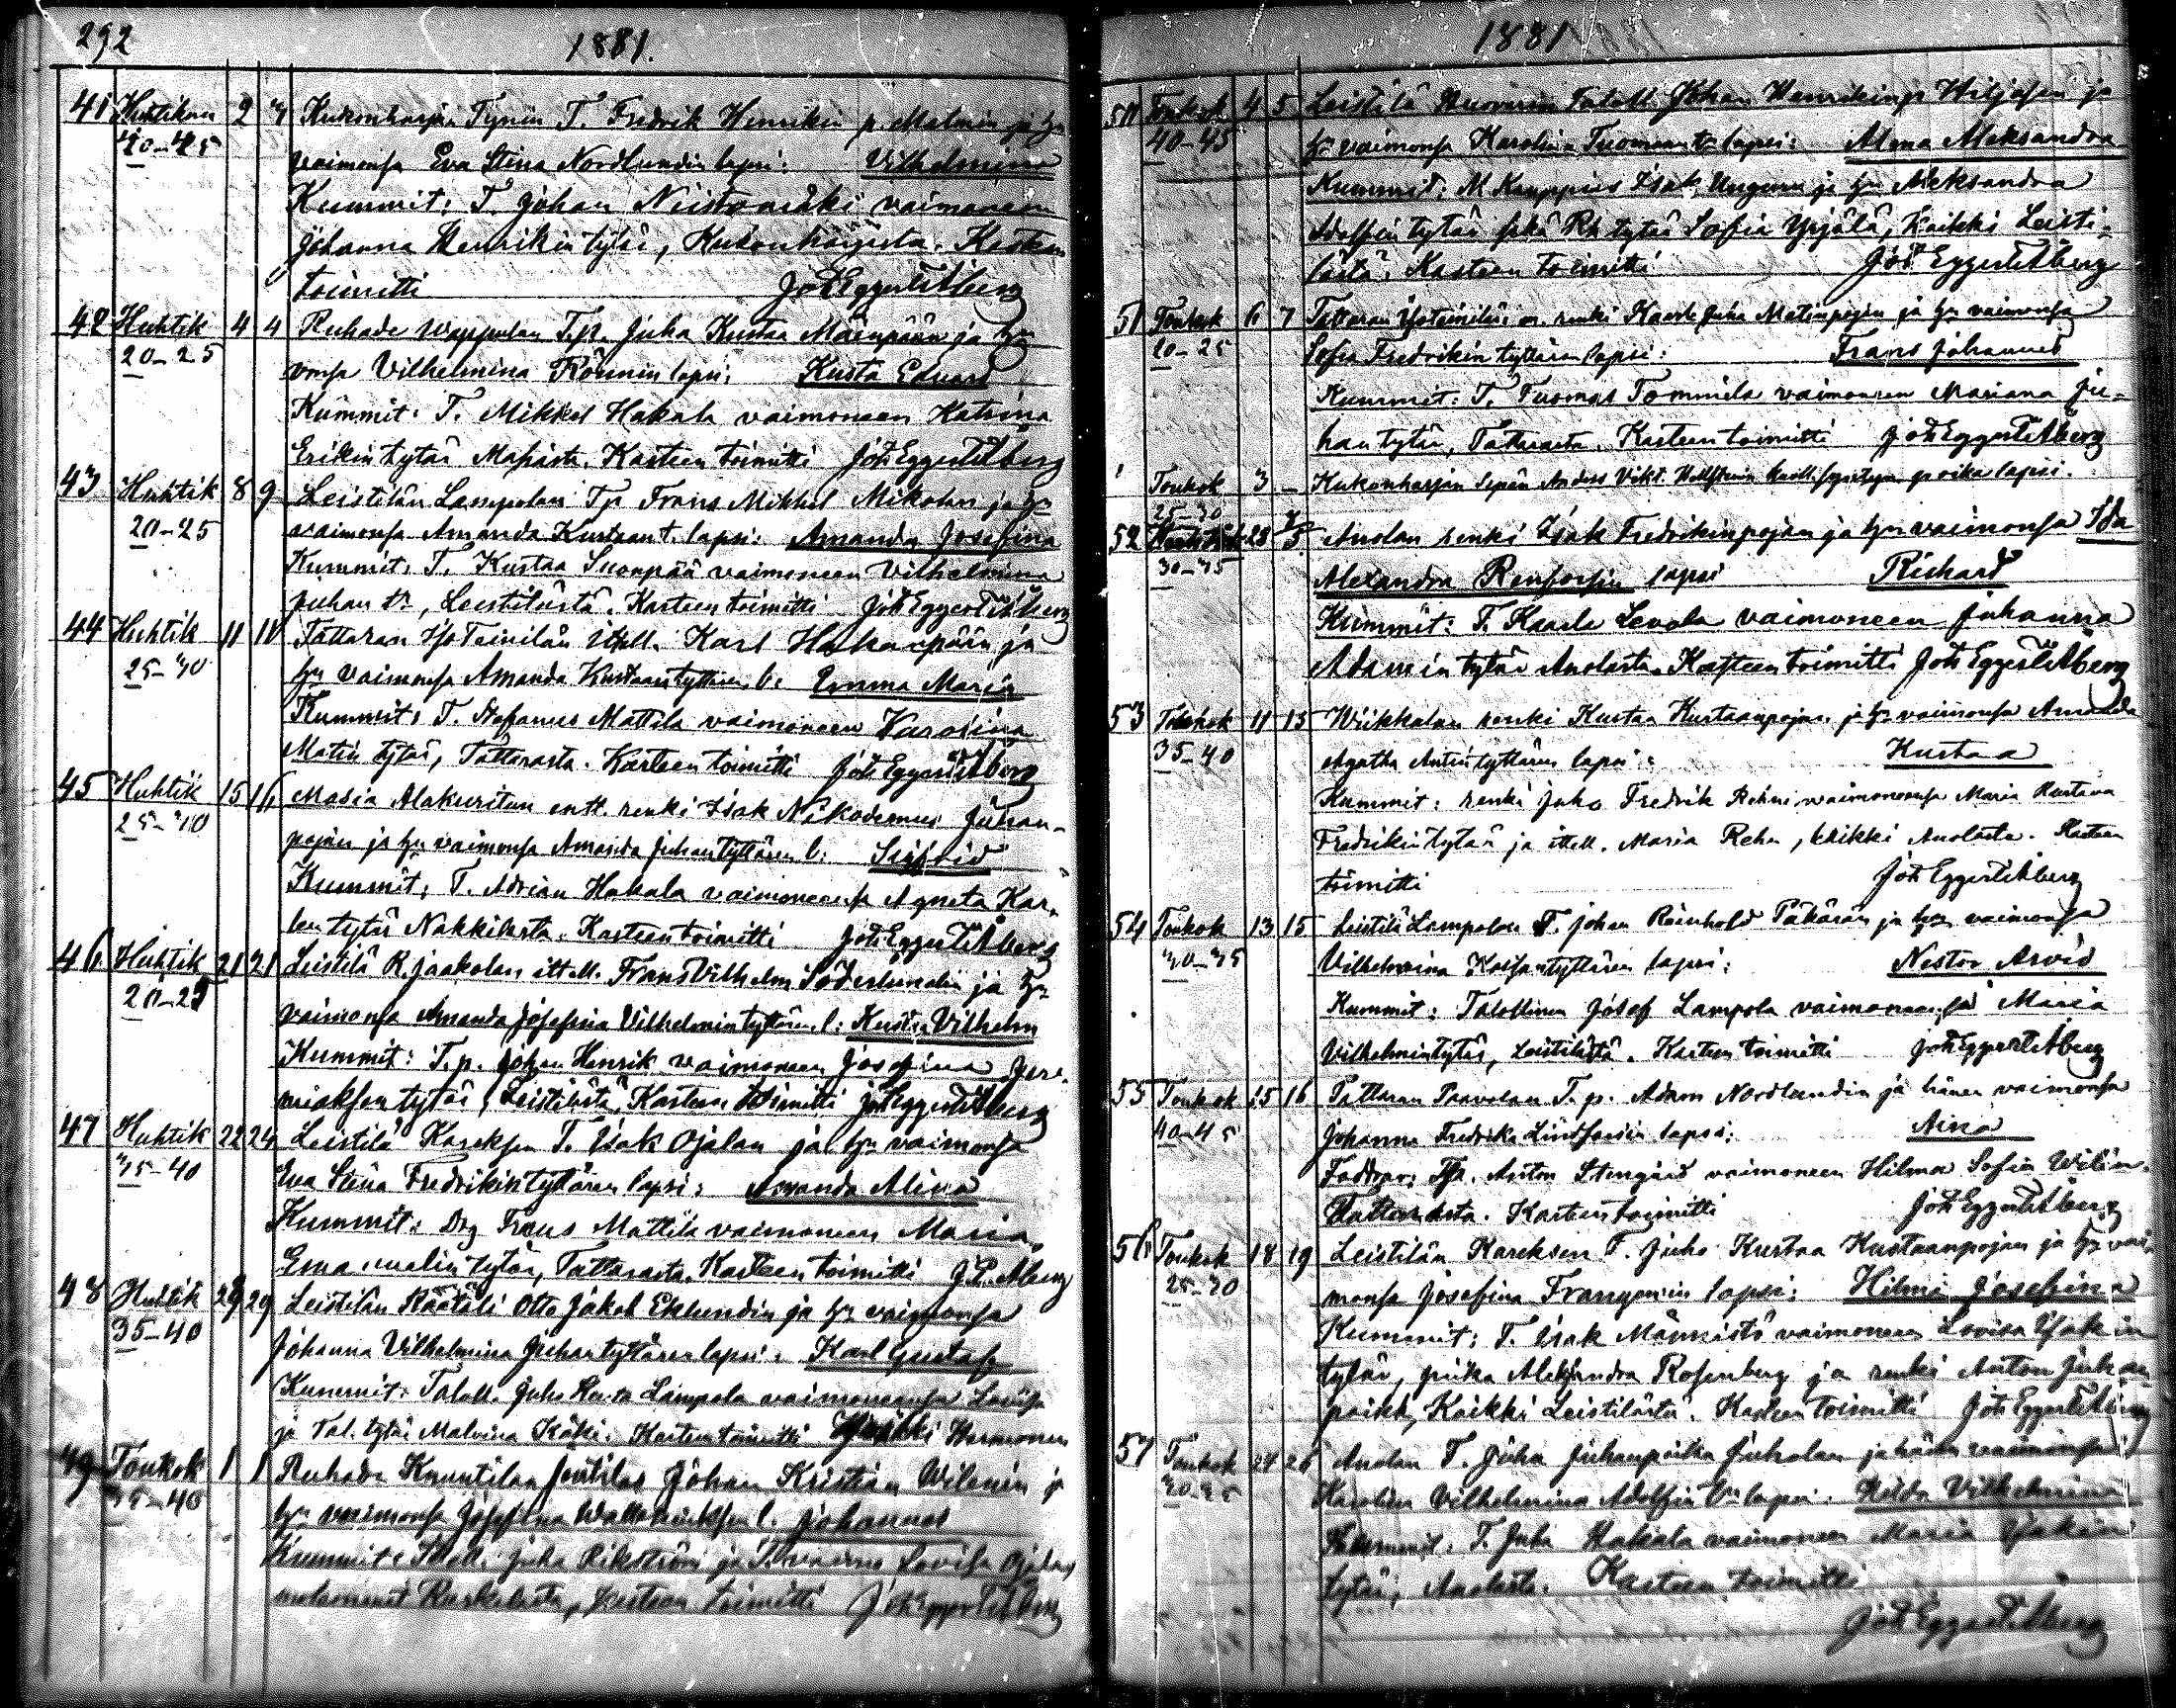 292
1881.
41 Huhtikuu 2 3 Kukonharjan Tynin T. Fredrik Henrikin p. Malmin ja hn
40-45 vaimonsa Eva Stina Nordlundin lapsi: Vilhelmina
Kummit: T. Johan Niistomäki vaimoneen
Johanna Henrikin tytär, Kukonharjasta. Kasteen
toimitti Joh Eggert Åberg
42 Huhtik 4 4 Ruhade Wappulan T.p. Juha Kustaa Mäenpään ja hn
20-25 vmsa Vilhelmina Röunin lapsi: Kusta Edvard
Kummit: T. Mikkel Hakala vaimoneen Katrina
Erikin tytär Masiasta. Kasteen toimitti Joh Eggert Åberg
43 Huhtik 8 9 Leistilän Lampolan Tp Frans Mikkel Mikolan ja hn
20-25 vaimonsa Amanda Kustaan t. lapsi: Amanda Josefina
Kummit: T. Kustaa Suonpää vaimoneen Vilhelmina
Juhan tr, Leistilästä. Kasteen toimitti Joh Eggert Åberg
44 Huhtik 11 18 Tattaran Iso Teinilän itsll. Karl Hakanpään ja
25-30 hn vaimonsa Amanda Kustaantyttären l: Emma Maria
Kummit: T. Stefanus Mattila vaimoneen Karolina
Matin tytär, Tattarasta. Kasteen toimitti Joh Eggert Åberg
45 Huhtik 15 16 Masia Alakuritun entt. renki Isak Nikodemus Juhan-
25-30 pojan ja hn vaimonsa Amanda Juhantyttären l: Sigfrid
Kummit: T. Adrian Hakala vaimoneensa Agneta Kar-
len tytär Nakkilasta. Kasteen toimitti Joh Eggert Åberg
46 Huhtik 21 21 Leistilä R. Jaakolan itsll. Frans Vilhelm Söderlundin ja hn
20-25 vaimonsa Amanda Josefina Vilhelmintyttären l: Kusta Vilhelm
Kummit: T.p. Johan Henrik vaimoneen Josefina Jere-
miaksen tytär, Leistilästä. Kasteen toimitti Joh Eggert Åberg
47 Huhtik 22 24 Leistilä Kareksen T. Isak Ojalan ja hn vaimonsa
35-40 Eva Stina Fredrikintyttären lapsi: Amanda Alina
Kummit: Drg Frans Mattila vaimoneen Maria
Emanuelin tytär, Tattarasta. Kasteen toimitti J.E. Åberg
48 Huhtik 28 29 Leistilän Räätäli Otto Jakob Eklundin ja hn vaimonsa
35-40 Johanna Vilhelmina Juhantyttären lapsi: Karl Gustaf
Kummit: Taloll. Juho Kusta Lampola vaimoneensa Lovisa
ja Tal. tytär Malvina Käki. Kasteen toimitti Heikki Harmonen
49 Toukok 1 1 Ruhade Knuutilan Joh Kristian Wilenin ja
35-40 hn vaimonsa Josefina l: Johannes
Kummit: Itsll. Juha Rikström ja T. vaimo Lovisa Ojala,
molemmat Ruskilasta, Kasteen toimitti Joh Eggert Åberg
1881
50 Toukok 4 5 Leistilä Taloll. Johan Henrikin p Hiljasen ja
40-45 hn vaimonsa Karolina Tuomaan tr lapsi: Alma Aleksandra
Kummit: Isak Ungern ja hn Aleksandra
Adolfin tytär sekä tytär Sofia Yrjälä, Kaikki Leisti-
lästä. Kasteen toimitti Joh Eggert Åberg
51 Toukok 6 7 Tattaran Iso Teinilän renki Kaarle Juha Matinpojan ja hn vaimonsa
20-25 Sofia Fredrikin tyttären lapsi: Frans Johannes
Kummit: T. Tuomas Tommila vaimoneen Mariana Ju-
han tytär, Tattarasta. Kasteen toimitti Joh Eggert Åberg
1 Toukok 3 - Kukonharjan Sepän Anders Vikt. kuoll. syntyn. poika lapsi.
25-30
52 Huhtik 28 7/5 Anolan renki Isak Fredrikinpojan ja hn vaimonsa Ida
30-35 Alexandra Renforsin lapsi Richard
Kummit: T. Kaarle Levola vaimoneen Johanna
Adamin tytär Anolasta. Kasteen toimitti Joh Eggert Åberg
53 Toukok 11 15 Wiikkalan renki Kustaa Kustaanpojan ja hn vaimonsa Amanda
35-40 Agatha Antintyttären lapsi: Kustaa
Kummit: renki Juho Fredrik Rehn vaimoneensa Maria Kustava
Fredrikintytär ja itsll. Maria Rehn, kaikki Anolasta. Kasteen
toimitti Joh Eggert Åberg
54 Toukok 13 15 Leistilä Lampolan T. Johan Reinhold Päkärän ja hn vaimonsa
30-35 Vilhelmina tyttären lapsi: Nestor Arvid
Kummit: Talollinen Josef Lampola vaimoneensa Maria
Vilhelmintytär, Leistilästä. Kasteen toimitti Joh Eggert Åberg
55 Toukok 15 16 Tattaran Paavolan T.p. Adam Nordlundin ja hänen vaimonsa
40-45 Johanna Fredrika Lindforsin lapsi: Aina
Faddrar: Tp. Anton Stengård vaimoneen Hilma Sofia Wilin.
Tattarasta. Kasteen toimitti Joh Eggert Åberg
56 Toukok 18 19 Leistilän Kareksen T. Juho Kustaa Kustaanpojan ja hn vai-
25-30 monsa Josefina lapsi: Hilmi Josefina
Kummit: T. Isak Männistö vaimoneen Lovisa Isakin
tytär, piika Aleksandra Rosenberg ja renki Anton Juhan
poika, Kaikki Leistilästä. Kasteen toimitti Joh Eggert Åberg
57 Toukok 24 26 Anolan T. Juha Juhanpoika Juholan ja hänen vaimonsa
30-35 Karolina Vilhelmina Adolfin tr lapsi: Hilda Vilhelmina
Kummit: T. Juha Hakala vaimoneen Maria Isakin
tytär, Anolasta. Kasteen toimitti
Joh Eggert Åberg